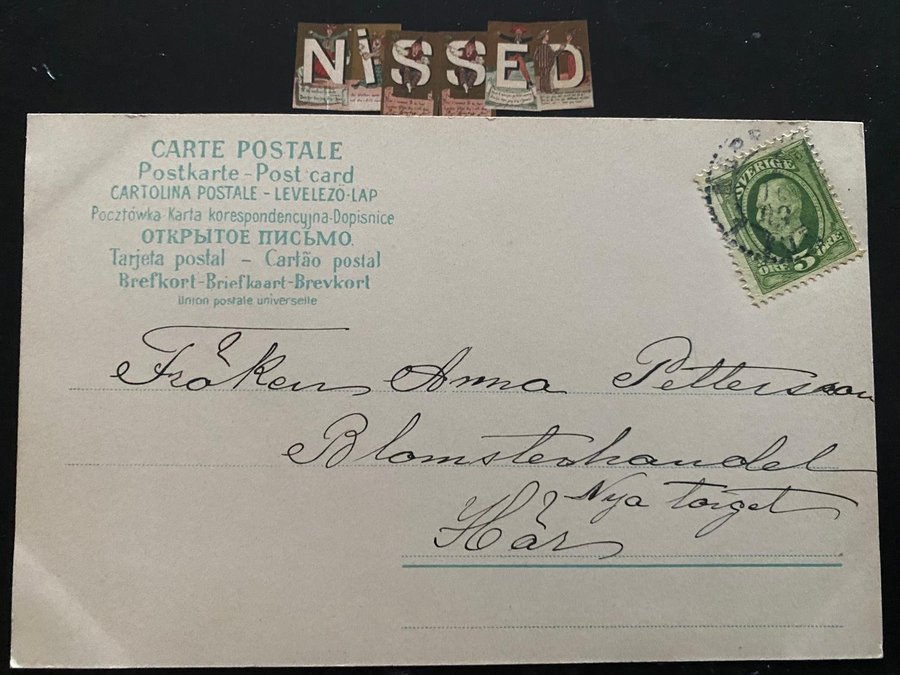 NiSSED
CARTE POSTALE
Postkarte - Post card
CARTOLINA POSTALE - LEVELEZÖ-LAP
Pocztówka-Karta korespondencyjna-Dopisnice
ОТКРЫТОЕ ПИСЬМО.
Tarjeta postal - Cartão postal
Brefkort-Briefkaart-Brevkort
Union postale universelle
SVERIGE
5
ÖRE
Fröken Anna Pettersson
Blomsterhandel
Nya torget
Här